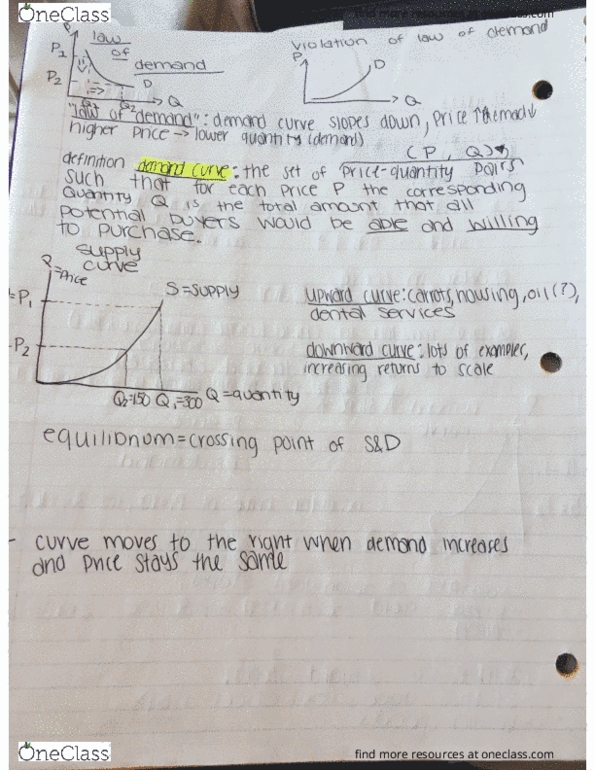 OneClass
find more resources at oneclass.com
law of demand
P1
P2
D
Q2
Q
violation of law of demand
P
D
Q
"law of demand": demand curve slopes down, price ↑ demand↓
higher price → lower quantity (demand)
(P, Q)
definition demand curve: the set of price-quantity pairs
such that for each price P the corresponding
Quantity Q is the total amount that all
potential buyers would be able and willing
to purchase.
supply
curve
P
=Price
S=SUPPLY
=P1
P2
Q2=150 Q1=300 Q=quantity
upward curve: carrots, housing, oil(?),
dental services
downward curve: lots of examples,
increasing returns to scale
equilibrium=crossing point of S&D
- curve moves to the right when demand increases
and price stays the same
OneClass
find more resources at oneclass.com